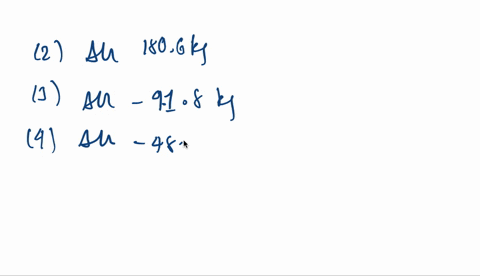 (2) ΔH 180.6 kJ
(3) ΔH - 91.8 kJ
(4) ΔH - 48.